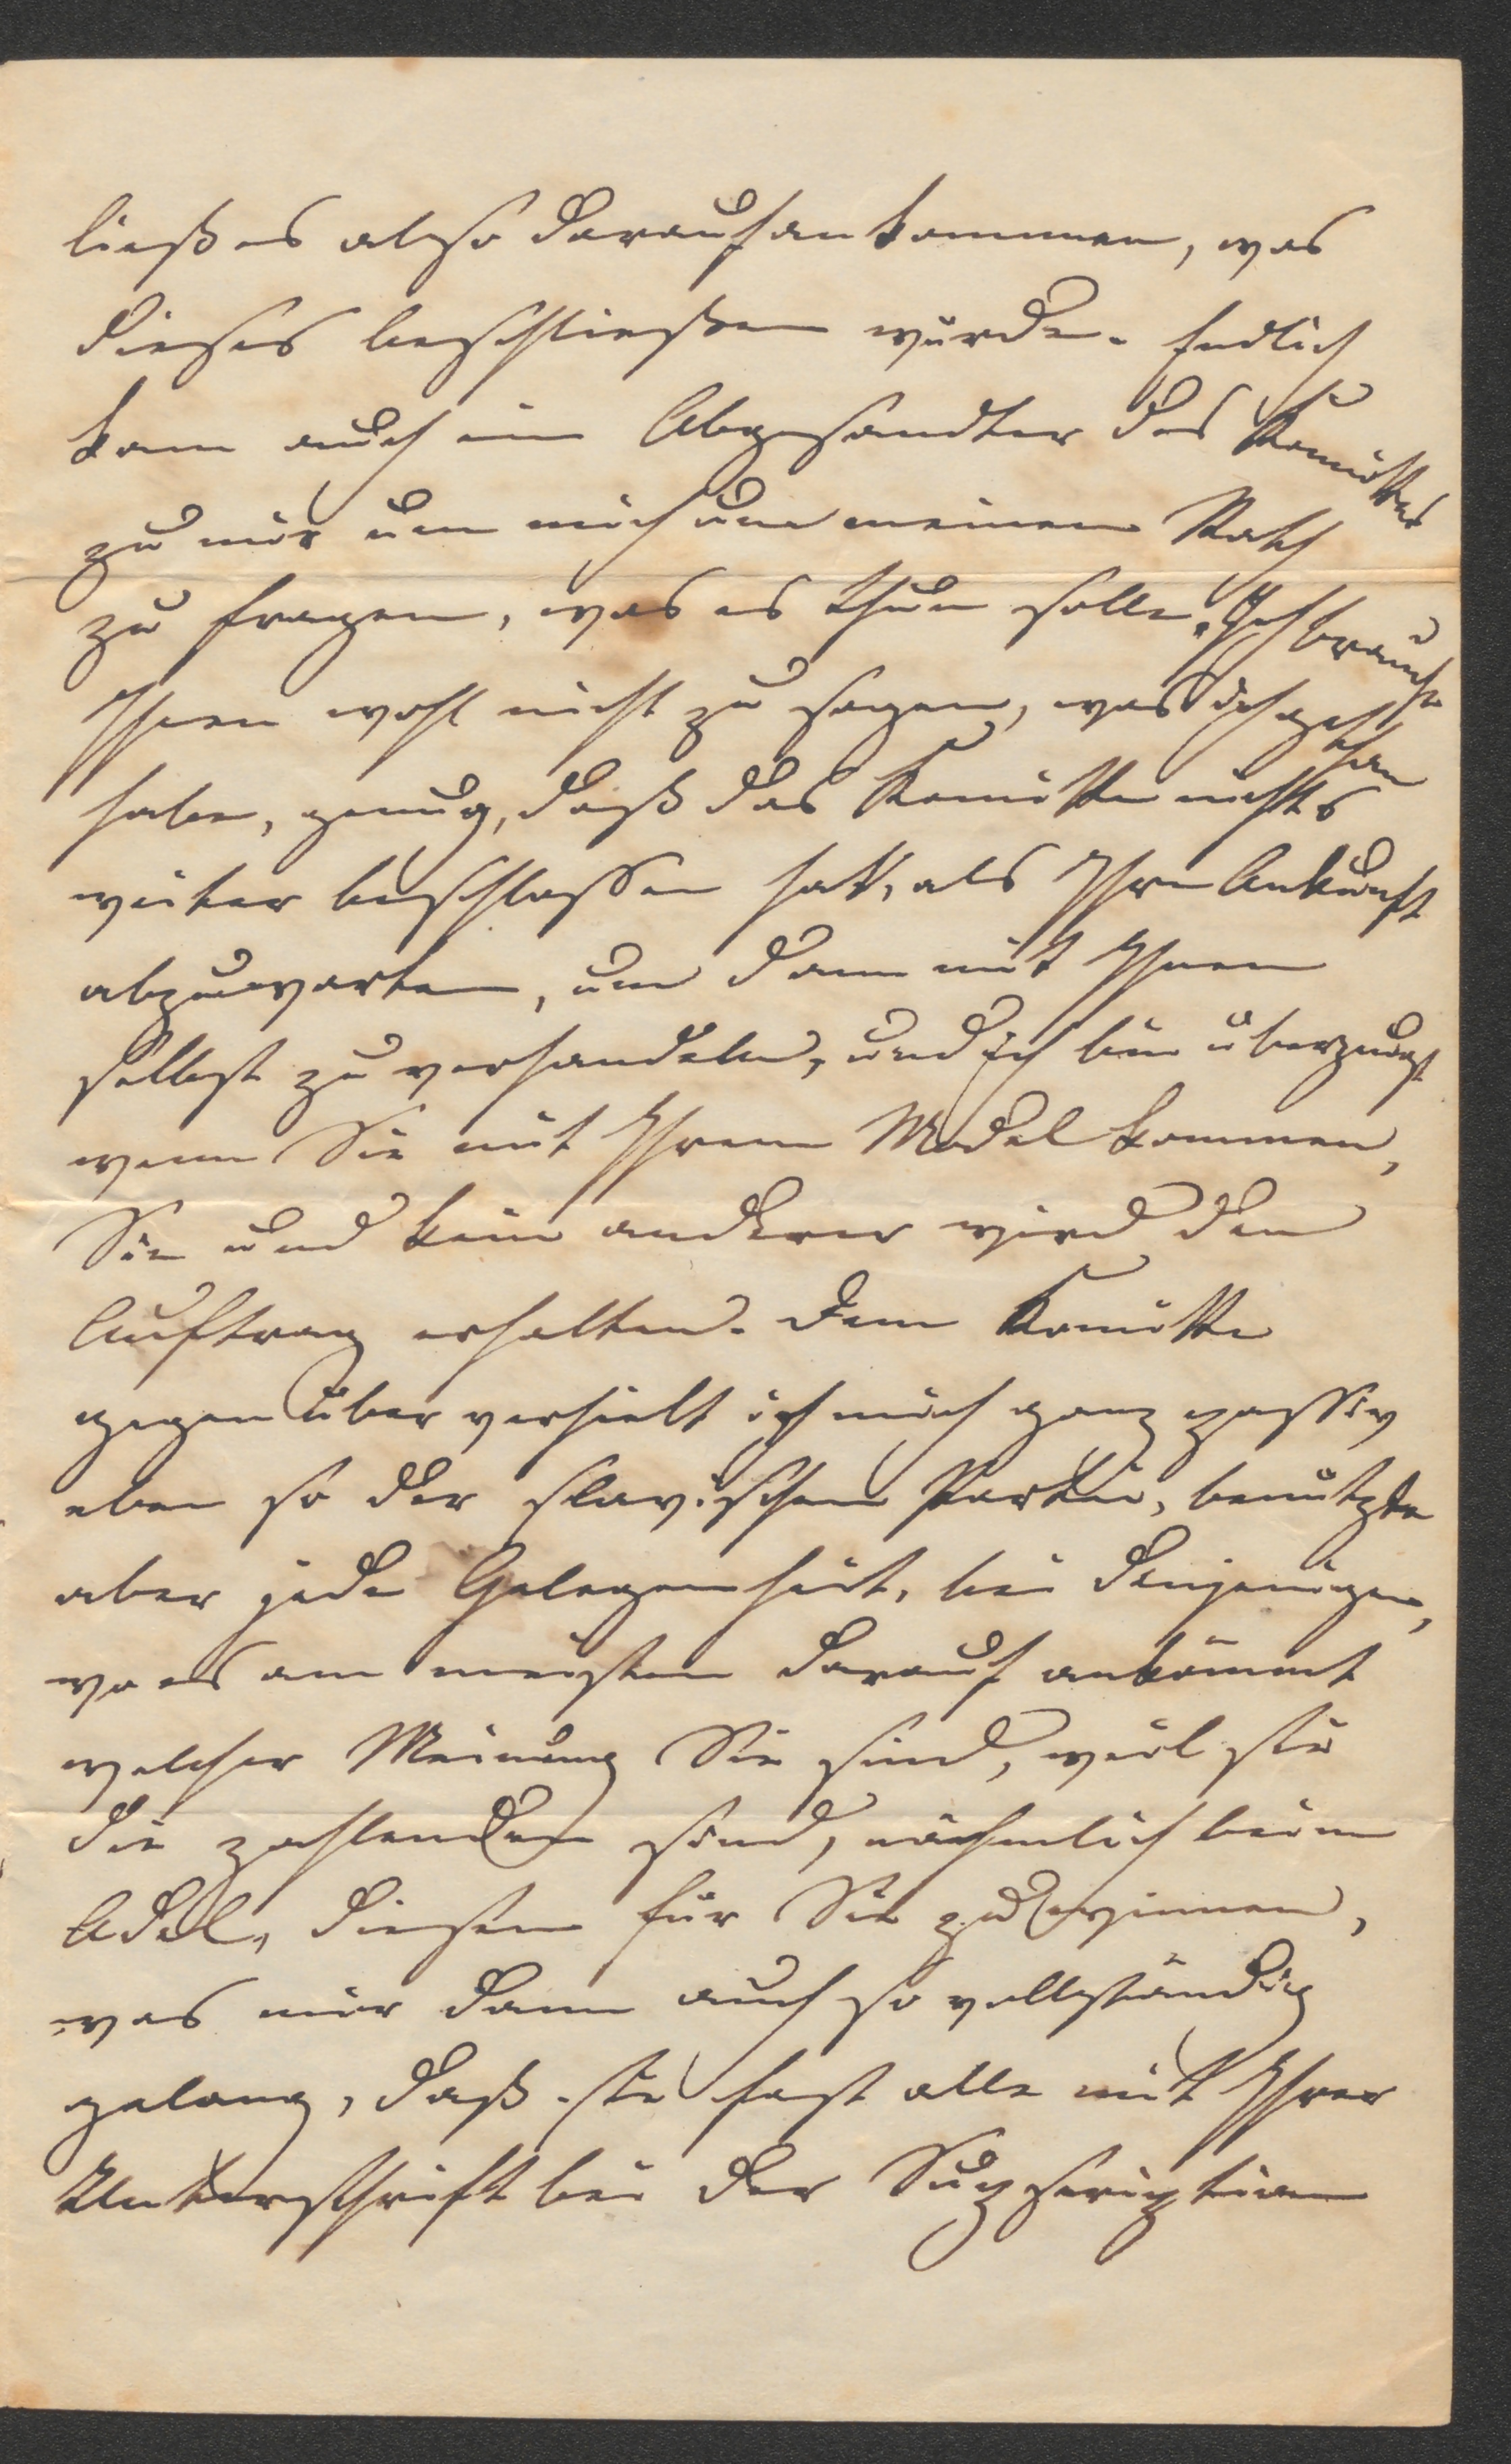 ließ es also darauf ankommen, was
dieses beschließen würde. Endlich
kam auch ein Abgesandter des Komittes
zu mir um mich um meinen Rath
zu fragen, was es thun solle. Ich brauche
Ihnen wohl nicht zu sagen, was ich gethan
habe, genug, daß das Komitte nichts
weiter beschlossen hat, als Ihre Ankunft
abzuwarten, um dann mit Ihnen
selbst zu verhandeln, und ich bin überzeugt
wenn Sie mit Ihrem Model kommen,
Sie und kein anderer wird den
Auftrag erhalten. Dem Komitte
gegenüber verhielt ich mich ganz passiv
eben so der slavischen Partei, benützte
aber jede Gelegenheit, bei denjenigen,
wo es am meisten darauf ankömmt
welcher Meinung Sie sind, weil sie
die zahlenden sind, nähmlich beim
Adel, diesen für Sie zu gewinnen,
was mir dann auch so vollständig
gelang, daß sie fast alle mit Ihrer
Unterschrift bei der Supscription